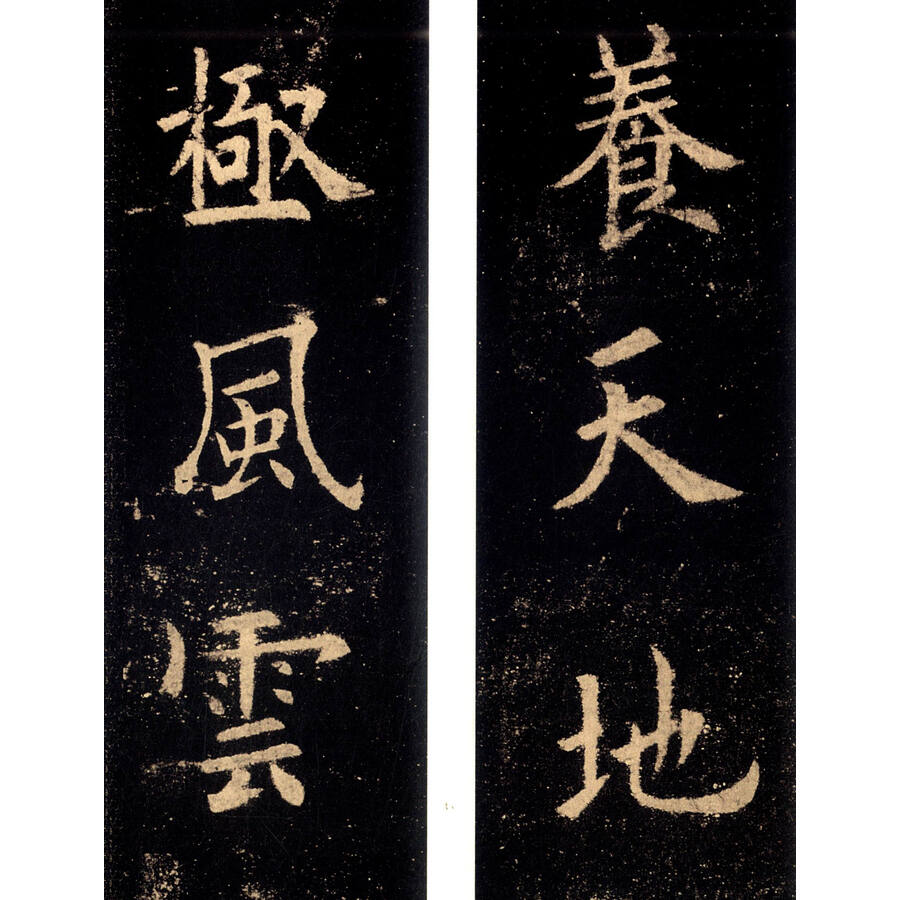 養天地
極風雲